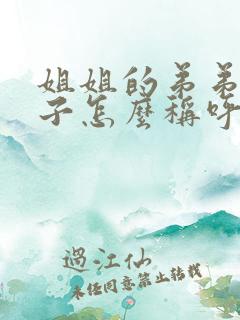 姐姐的弟弟
子怎麼稱呼
過江仙
未经同意禁止转载